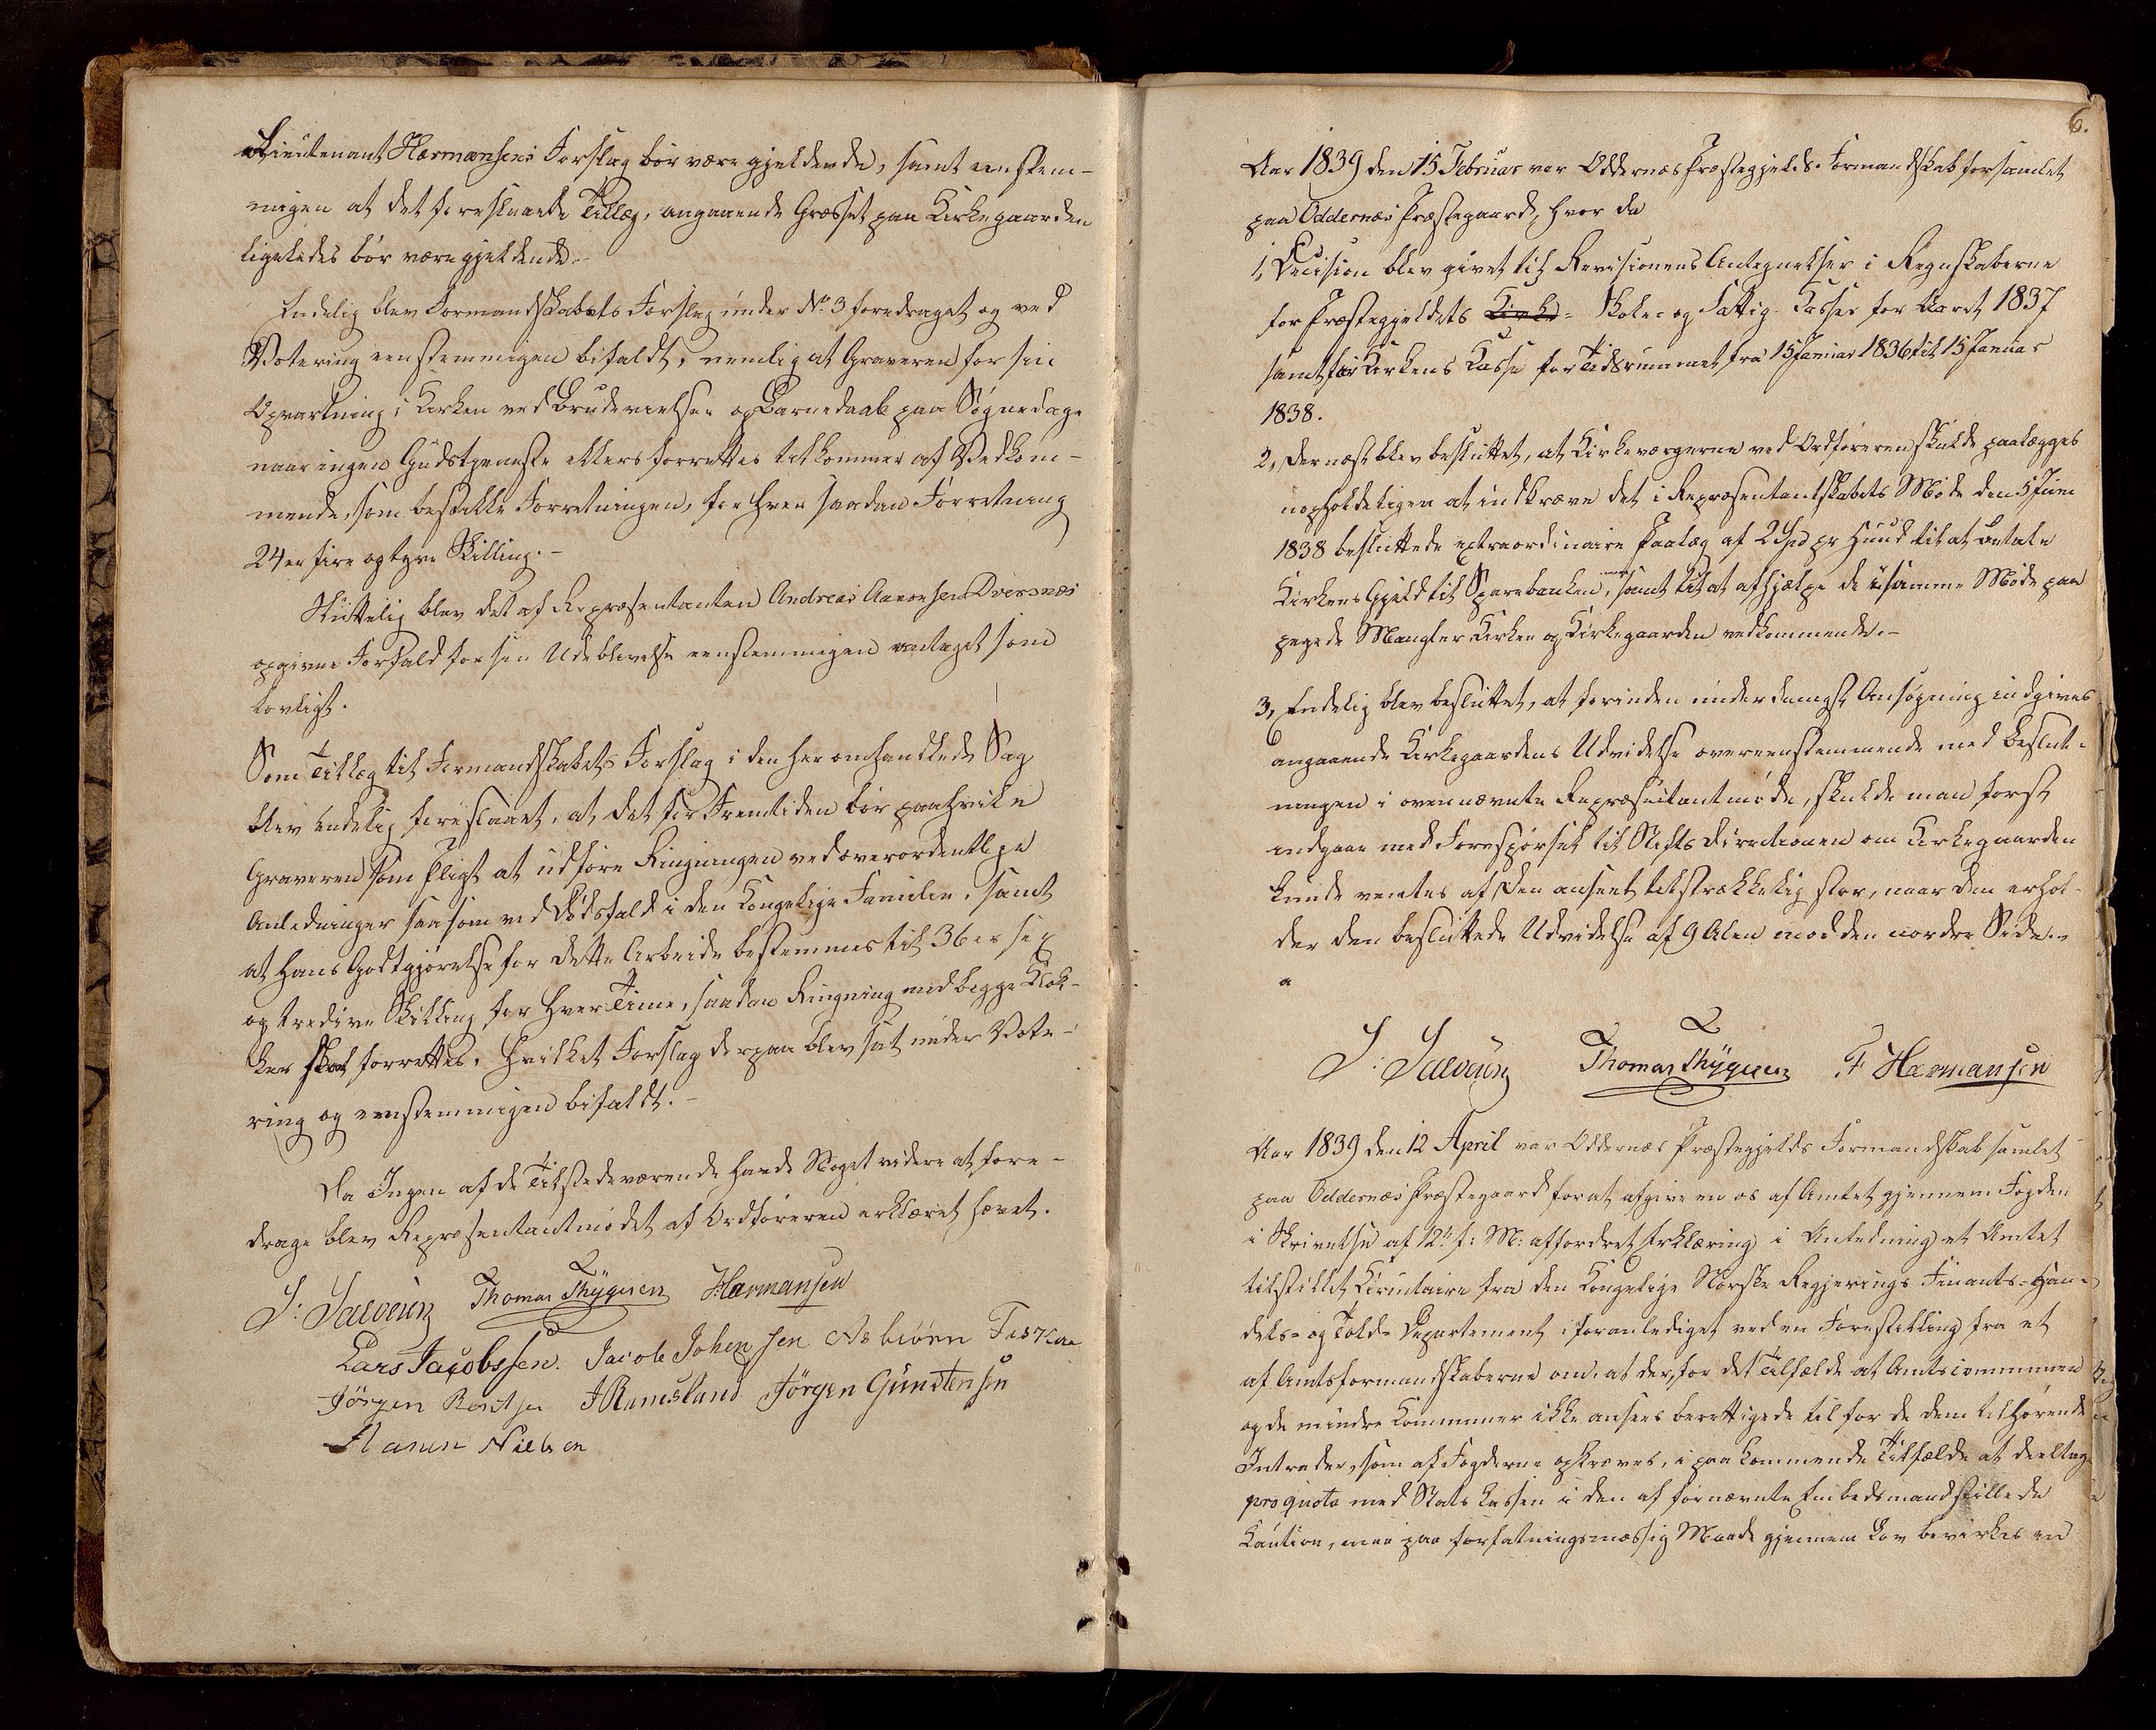 Lieutenant Hermansens Forslag bør være gjeldende, samt eenstem-
migen at det foreslaaede Tillæg, angaaende Græsset paa Kirkegaarden
ligeledes bør være gjeldende.
Endelig blev Formandskabets Forslag under No 3 foredraget og ved
Votering eenstemmigen bifaldt, nemlig at Graveren for sin
Opvartning i Kirken ved Brudevielser og Barnedaab paa Søgnedage
naar ingen Gudstjeneste ellers forrettes tilkommer af Vedkom-
mende, som bestille Forretningen, for hver saadan Forretning
24 er fire og tyve Skilling. -
Sluttelig blev det af Repræsentanten Andreas Aanonsen Dversnæs
opgivne Forfald for sin Udeblivelse eenstemmigen antaget som
lovligt.
Som Tillæg til Formandskabets Forslag i den her omhandlede Sag
blev endelig foreslaaet, at det for Fremtiden bør paahvile
Graveren som Pligt at udføre Ringningen ved overordentlige
Anledninger saasom ved Dødsfald i den Kongelige Familie, samt
at hans Godtgjørelse for dette Arbeide bestemmes til 36 er sex
og tredive Skilling for hver Time, saadan Ringning med begge Klok-
ker skal forrettes. Hvilket Forslag derpaa blev sat under Vote-
ring og eenstemmigen bifaldt. -
Da Ingen af de Tilstedeværende havde Noget videre at fore-
drage blev Repræsentantmødet af Ordføreren erklæret hævet.
Thomas Thygesen Hermansen
Lars Jacobssen. Jacob Johensen Asbiørn Fiskaa
Jörgen Berntsen Ramsland Jörgen Gunstensen
Aanen Nielsen
6.
Aar 1839 den 15 Februar var Oddernæs Præstegjelds Formandskab forsamlet
paa Oddernæs Præstegaard, hvor da
1, Decision blev givet til Revisionens Antegnelser i Regnskaberne
for Præstegjeldets Kirke- Skole- og Fattig-Casser for Aaret 1837
samt for Kirkens Casse for Tidsrummet fra 15 Januar 1836 til 15 Januar
1838.
2, Dernæst blev besluttet, at Kirkeværgerne ved Ordføreren skulde paalægges
uopholdeligen at indkræve det i Repræsentantskabets Møde den 5 Juni
1838 besluttede extraordinaire Paalæg af 2 Spd pr Huud til at betale
Kirkens Gjeld til Sparebanken, samt til at afhjælpe de i samme Møde paa
pegede Mangler Kirken og Kirkegaarden vedkommende. -
3, Endelig blev besluttet, at forinden underdanigst Ansøgning indgives
angaaende Kirkegaardens Udvidelse overeenstemmende med Beslut-
ningen i ovennævnte Repræsentantmøde, skulde man først
indgaae med Forespørsel til Stiftsdirectionen om Kirkegaarden
kunde ventes af den anseet tilstrækkelig stor, naar den erhol-
der den besluttede Udvidelse af 9 Alen mod den nordre Side. -
Thomas Thygesen F Hermansen
Aar 1839 den 12 April var Oddernæs Præstegjelds Formandskab samlet
paa Oddernæs Præstegaard for at afgive en os af Amtet gjennem Fogden
i Skrivelse af 12te f: M: affordret Erklæring i Anledning et Amtet
tilstillet Circulaire fra den Kongelige Norske Regjerings Finants- Han-
dels- og Told-Departement i foranlediget ved en Forestilling fra et
af Amtsformandskaberne om, at der, for det Tilfælde at Amtscommunen
og de mindre Communer ikke ansees berettigede til for de dem tilhørende
Intrader, som af Fogderne opkræves, i paakommende Tilfælde at deeltage
pro quota med Statskassen i den af fornævnte Embedsmand stillede
Caution, maa paa forfatningsmæssig Maade gjennem Lov bevirkes en